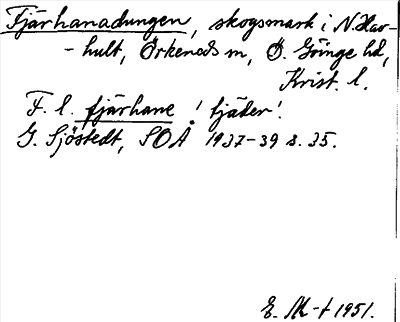 Fjärhanadungen, skogsmark i N. Hav-
-hult, Örkeneds sn, Ö. Göinge hd,
Krist. l.
F. l. fjärhane 'tjäder'.
G. Sjöstedt, SOÅ 1937-39 s. 35.
E. M-t 1951.